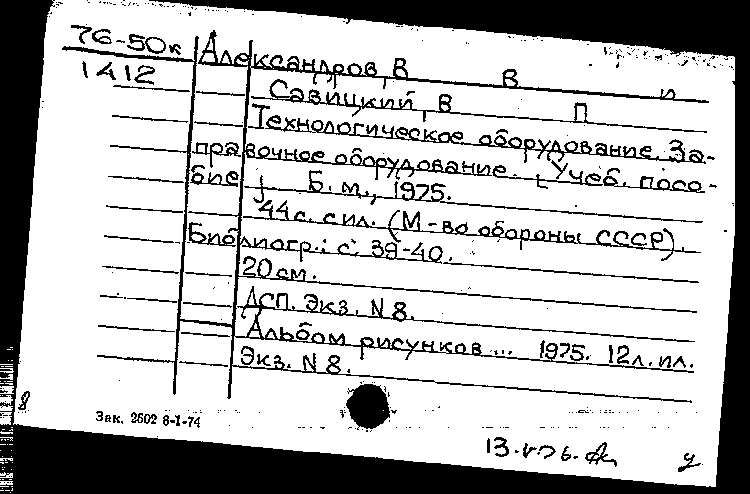 76-50к Александров, В В и
1412 Савицкий, В П
Технологическое оборудование. За-
правочное оборудование. [Учеб. посо-
бие] Б. м., 1975.
44 с. с ил. (М-во обороны СССР).
Библиогр.: с. 39-40.
20 см.
ДСП. Экз. N 8.
Альбом рисунков... 1975. 12 л. ил.
Экз. N 8.
8
Зак. 2602 8-1-74
у